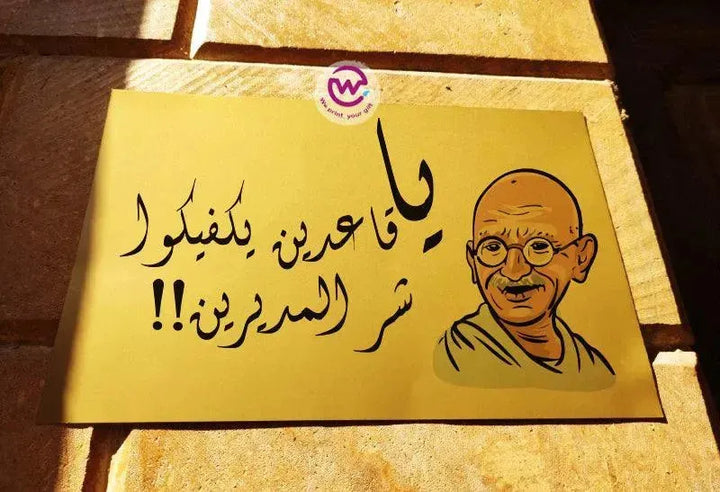 We print your gift
يا
قاعدين يكفيكوا
شر المديرين!!